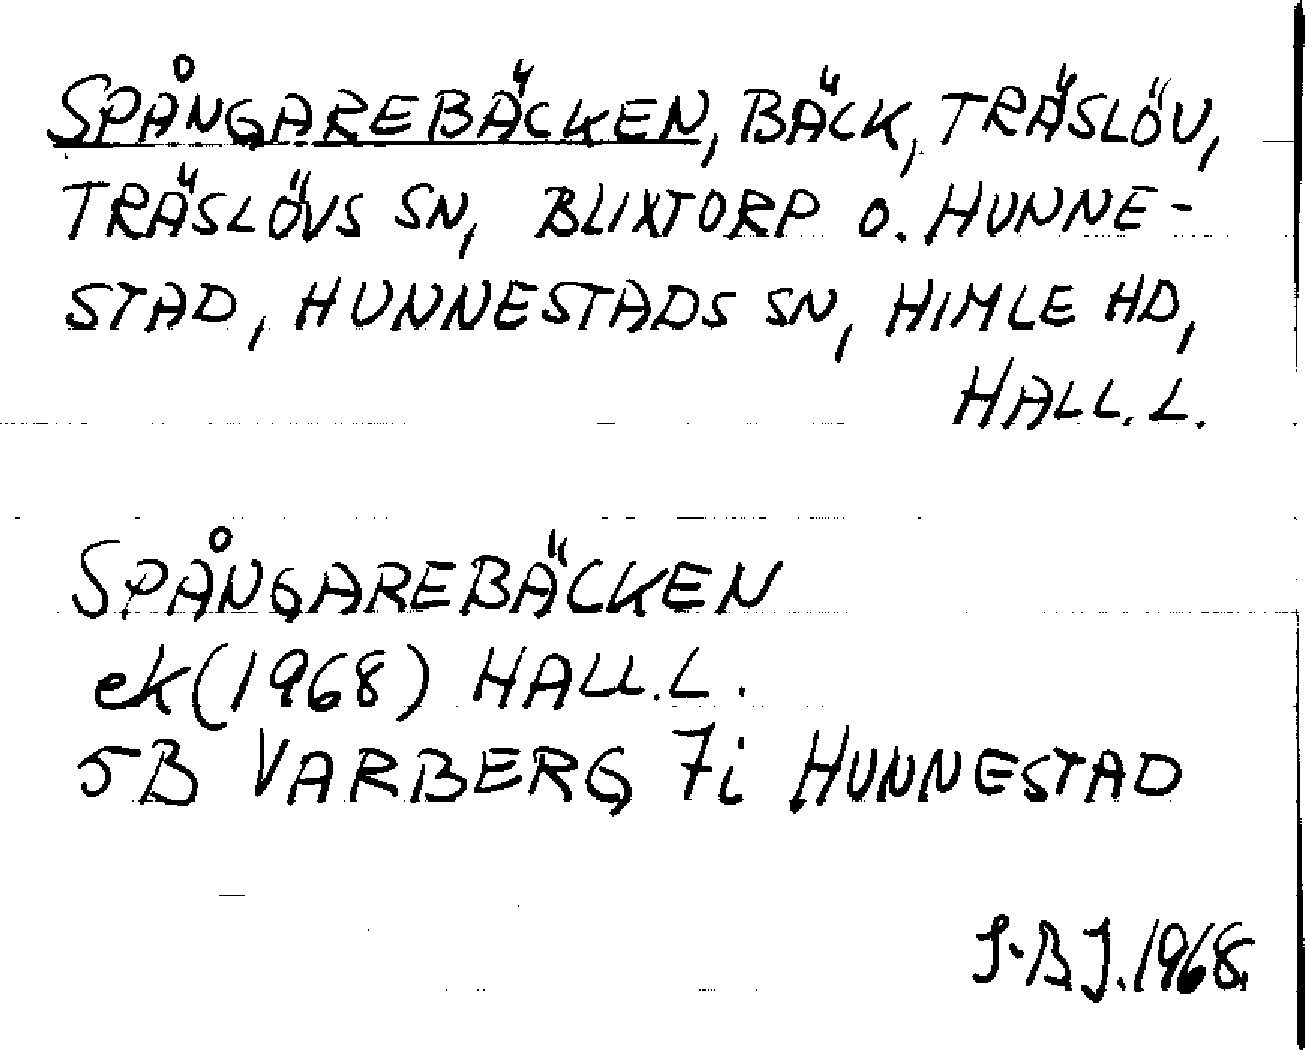 SPÅNGAREBÄCKEN, BÄCK, TRÄSLÖV,
TRÄSLÖVS SN, BLIXTORP O. HUNNE-
STAD, HUNNESTADS SN, HIMLE HD,
HALL.L.
SPÅNGAREBÄCKEN
ek (1968) HALL.L.
5B VARBERG 7i HUNNESTAD
S.BJ. 1968.